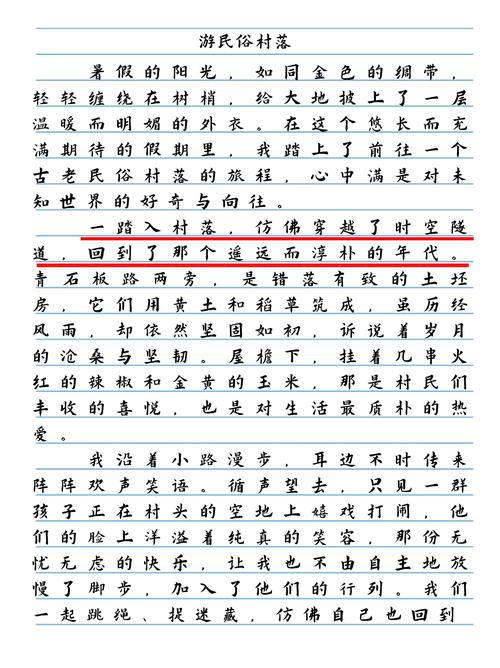 游民俗村落
暑假的阳光，如同金色的绸带，
轻轻缠绕在树梢，给大地披上了一层
温暖而明媚的外衣。在这个悠长而充
满期待的假期里，我踏上了前往一个
古老民俗村落的旅程，心中满是对未
知世界的好奇与向往。
一踏入村落，仿佛穿越了时空隧
道，回到了那个遥远而淳朴的年代。
青石板路两旁，是错落有致的土坯
房，它们用黄土和稻草筑成，虽历经
风雨，却依然坚固如初，诉说着岁月
的沧桑与坚韧。屋檐下，挂着几串火
红的辣椒和金黄的玉米，那是村民们
丰收的喜悦，也是对生活最质朴的热
爱。
我沿着小路漫步，耳边不时传来
阵阵欢声笑语。循声望去，只见一群
孩子正在村头的空地上嬉戏打闹，他
们的脸上洋溢着纯真的笑容，那份无
忧无虑的快乐，让我也不由自主地放
慢了脚步，加入了他们的行列。我们
一起跳绳、捉迷藏，仿佛自己也回到